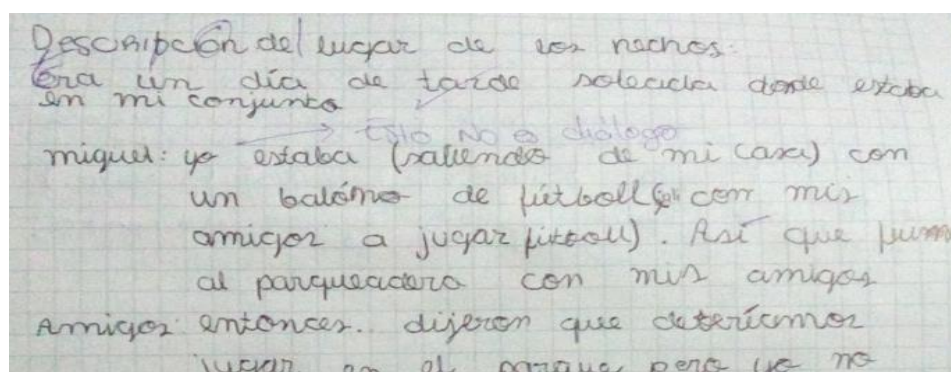 Descripción del lugar de los hechos:
Era un día de tarde soleada donde estaba
en mi conjunto
Esto No es diálogo
miguel: yo estaba (saliendo de mi casa) con
un balón de fútboll con mis
amigos a jugar fútboll). Así que fuim
al parqueadero con mis amigos
Amigos: entonces. dijeron que deberíamos
jugar en el parque pero yo no